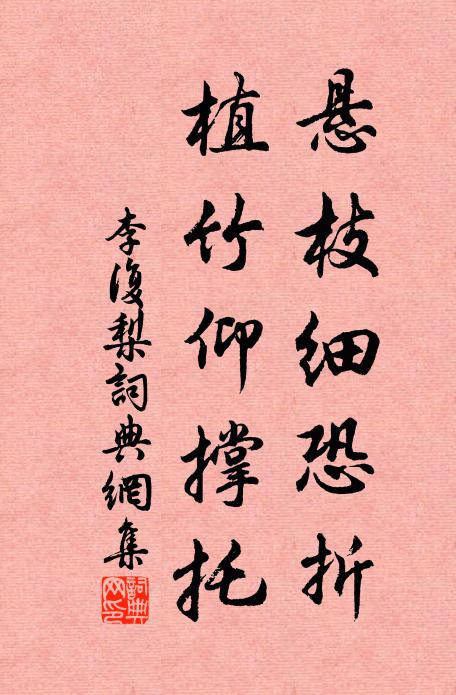 悬枝细恐折
植竹仰撑托
李復梨詞典網集
詞典網印